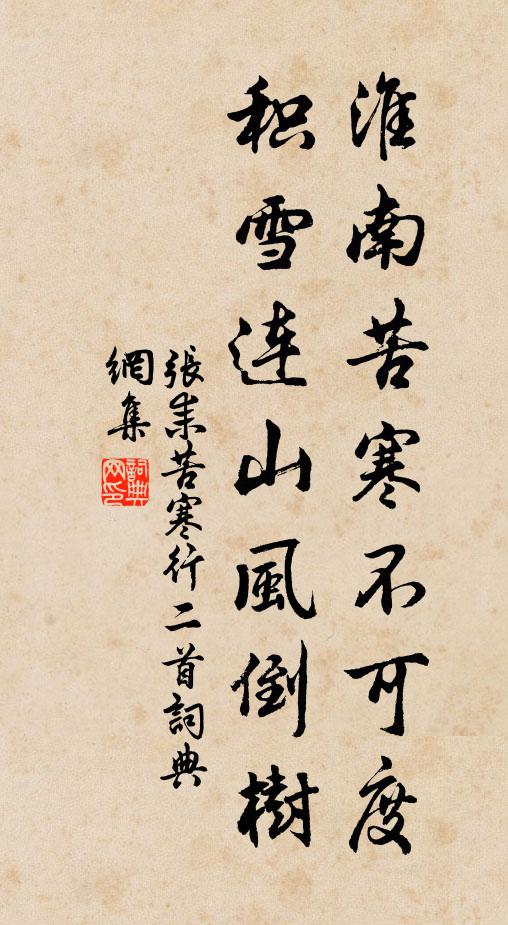 淮南苦寒不可度
积雪连山風倒樹
張耒苦寒行二首詞典
網集
詞典网印